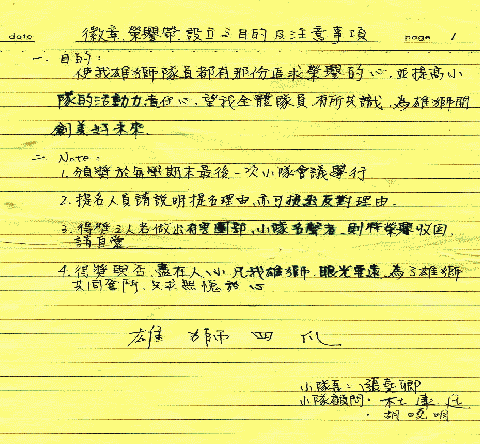 date 徽章.榮譽帶.設立之目的及注意事項 page 1
一. 目的:
使我雄獅隊員都有那份追求榮譽的心,並提高小
隊的活動力責任心,望我全體隊員有所共識,為雄獅開
創美好未來.
二. Note:
1. 頒獎於每學期末最後一次小隊會議舉行
2. 提名人員請說明提名理由,亦可提出反對理由.
3. 得獎之人若做出有害團部,小隊名聲者,則將榮譽收回,
請自愛
4. 得獎與否,盡在人心,凡我雄獅,眼光至遠,為了雄獅
共同奮鬥,只求無愧於心
雄獅四爪
小隊長:張
小隊顧問:杜康
胡 明